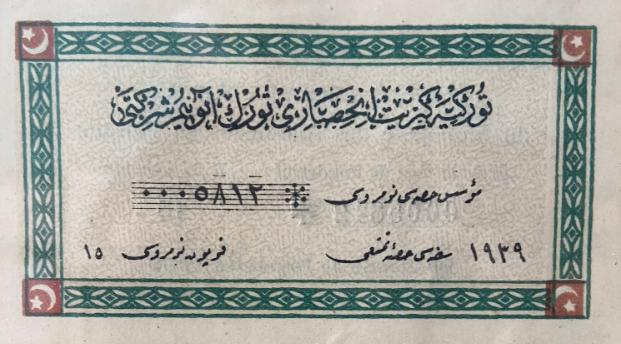 تورکیه کبریت انحصاری تورک آنونیم شرکتی
مؤسس حصه‌سی نومروسی ٠٠٠٥٨١٢
١٩٣٩ سنه‌سی حصهٔ تمتعی
قوپون نومروسی ١٥